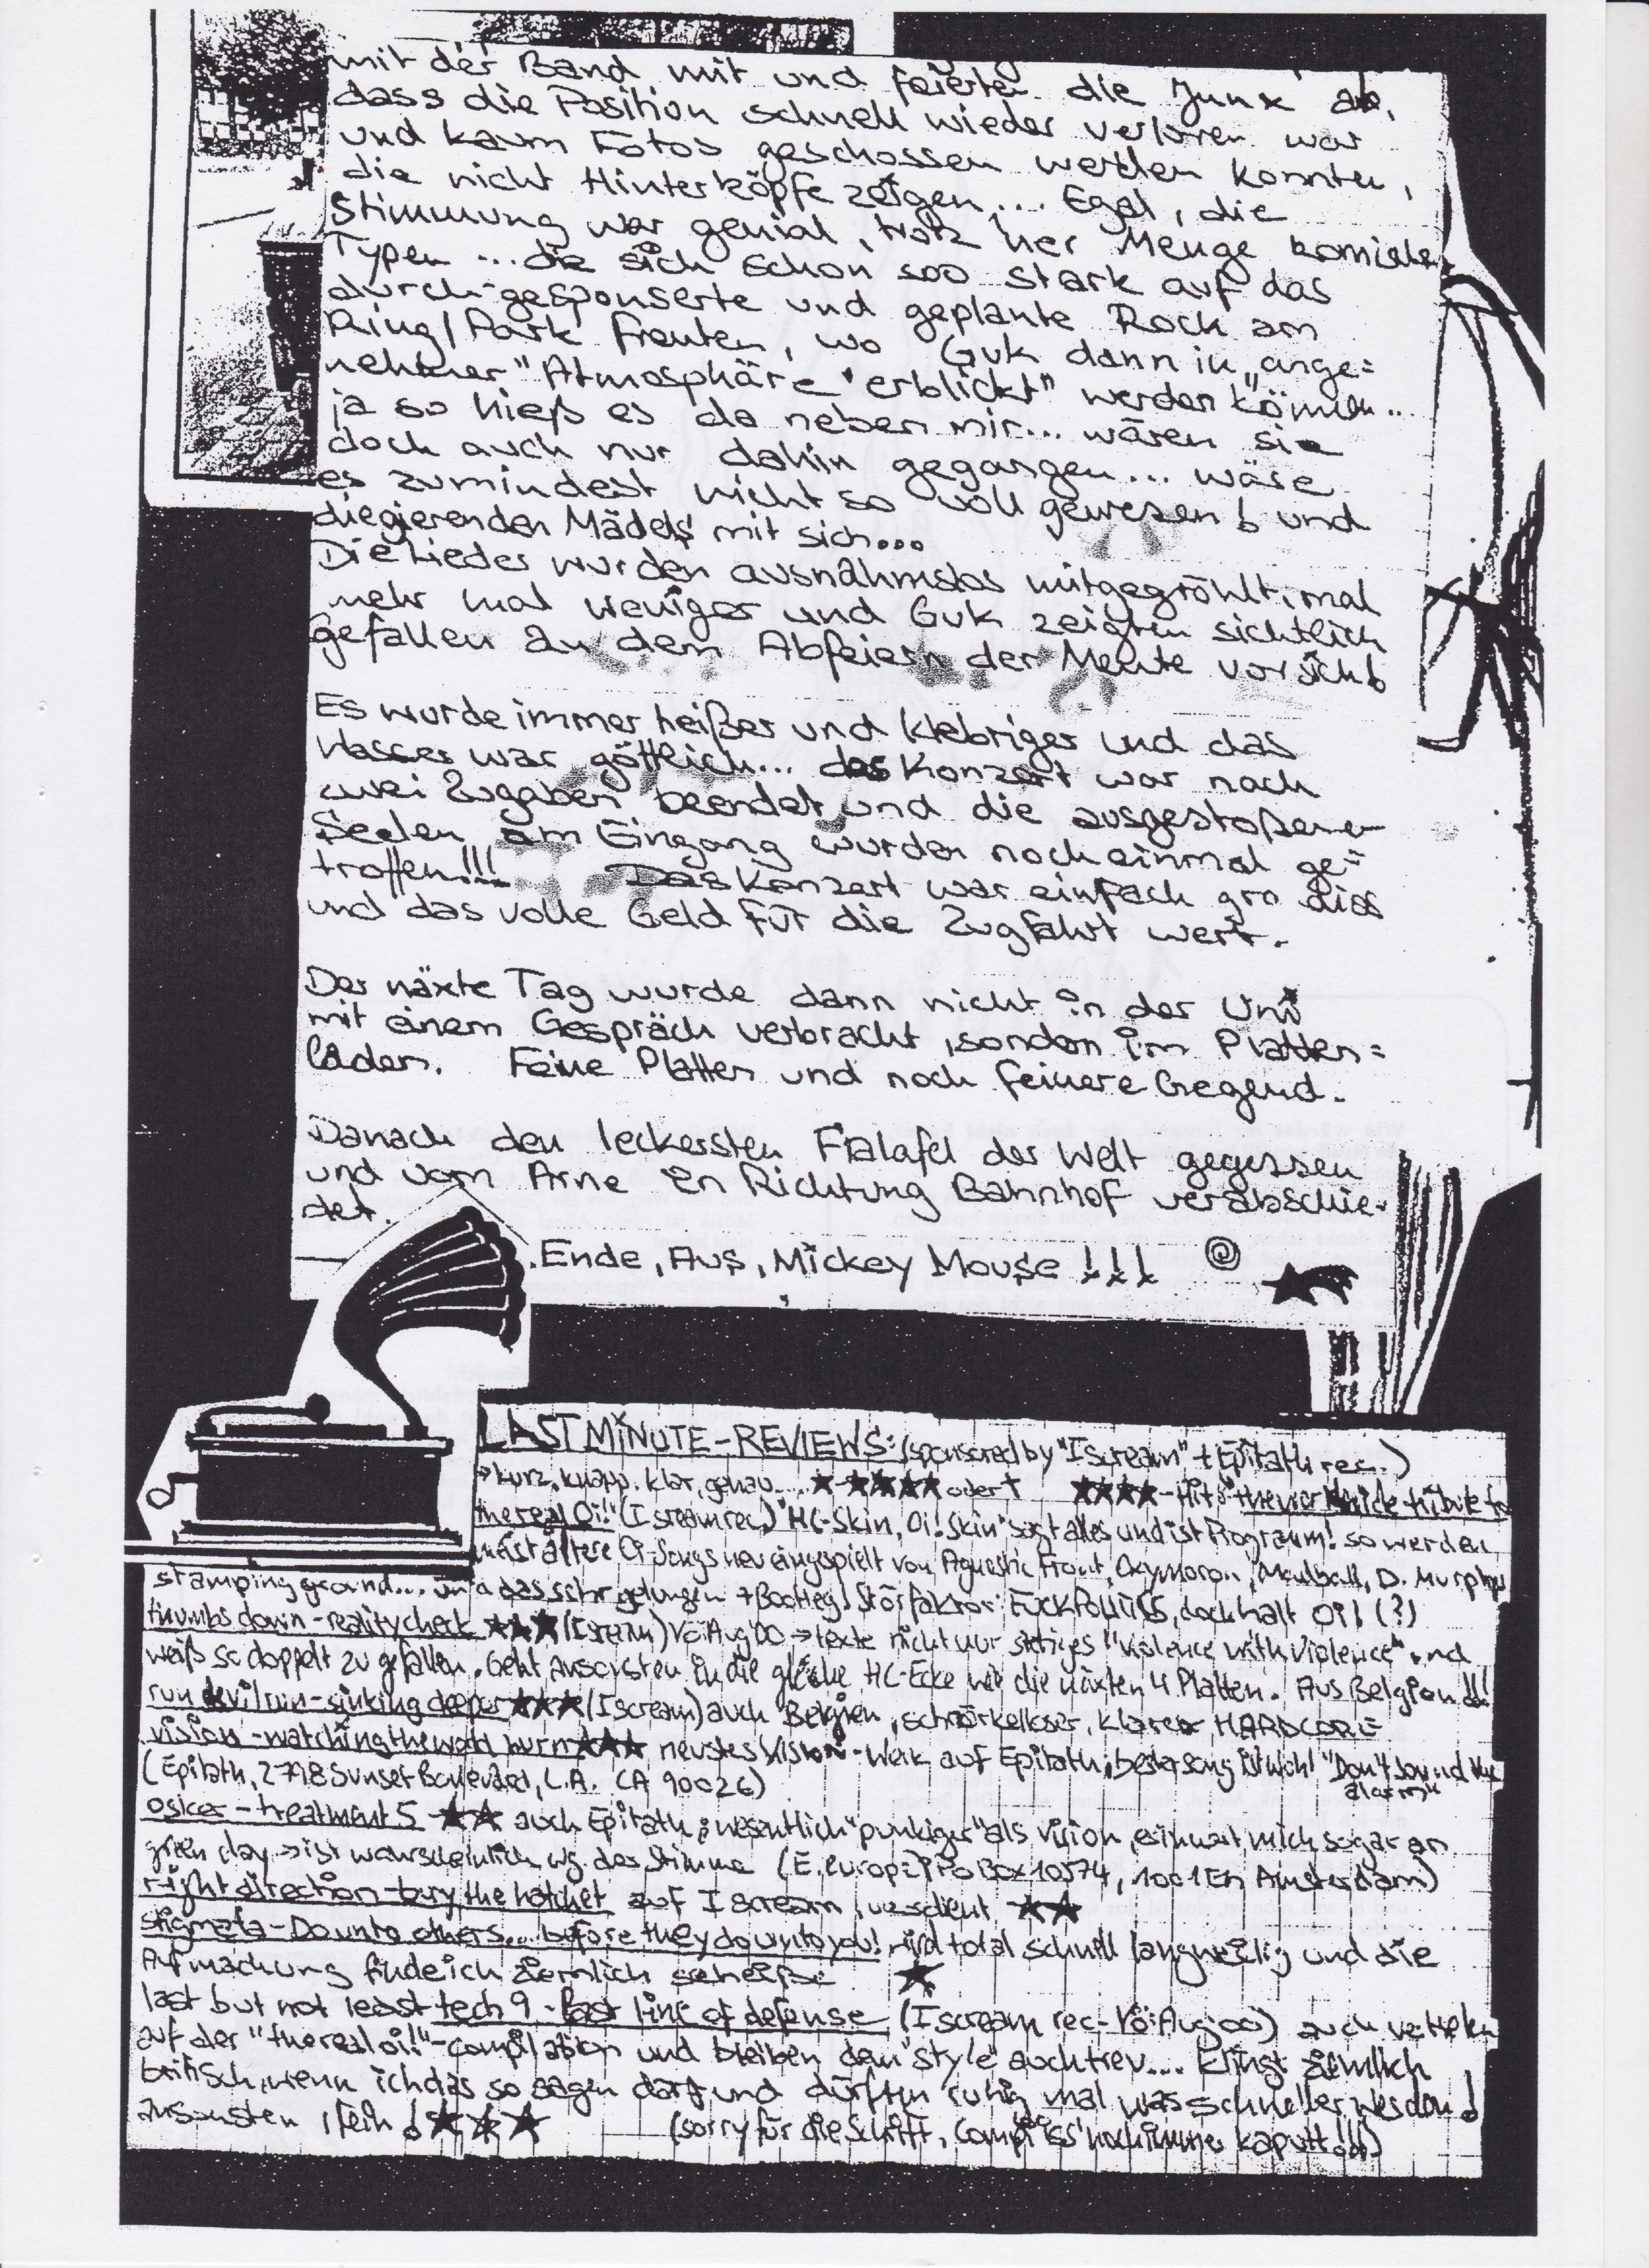 mit der Band mit und feierten die Junx ab,
dass die Position schnell wieder verloren war
und kaum Fotos geschossen werden konnten,
die nicht Hinterköpfe zeigen... Egal, die
Stimmung war genial, trotz 'ner Menge komischer
Typen ... die sich schon soo stark auf das
durch-gesponserte und geplante Rock am
Ring/Park freuten, wo GUK dann in "ange=
nehmer" Atmosphäre "erblickt" werden können..
ja so hieß es da neben mir... wären sie
doch auch nur dahin gegangen... wäre
es zumindest nicht so voll gewesen! und
die gierenden Mädels mit sich...
Die Lieder wurden ausnahmslos mitgegröhlt, mal
mehr mal weniger und GUK zeigten sichtlich
Gefallen an dem Abfeiern der Meute vor sich!
Es wurde immer heißer und klebriger und das
Wasser war göttlich... das Konzert war nach
zwei Zugaben beendet und die ausgestoßenen
Seelen am Eingang wurden noch einmal ge=
troffen!!! Das Konzert war einfach grandios
und das volle Geld für die Zugfahrt wert.
Der näxte Tag wurde dann nicht in der Uni
mit einem Gespräch verbracht, sondern im Platten=
laden. Feine Platten und noch feinere Gegend.
Danach den leckersten Falafel der Welt gegessen
und vom Arne in Richtung Bahnhof verabschie-
det.
Ende, Aus, Mickey Mouse !!!
LAST MINUTE-REVIEWS: (sponsored by "I scream" + Epitath rec.)
→ kurz, knapp, klar, genau.... ★-★★★★ oder † ★★★★-Hit: the tribute to
the real Oi!" (I scream rec.) "HC-Skin, Oi! Skin" sagt alles und ist Programm! so werden
meist ältere Oi-Songs neu eingespielt von Agnostic Front, Oxymoron, Madball, D. Murphys
stamping ground... und das sehr gelungen + Bootleg! Störfaktor: FUCK POLITICS, doch halt Oi! (?)
thumbs down - reality check ★★★ (I scream) VÖ: Aug'00 → texte nicht nur "violence with violence" und
weiß so doppelt zu gefallen. Geht ansonsten in die gleiche HC-Ecke wie die näxten 4 Platten. Aus Belgien
run devil run - sinking deeper ★★★ (I scream) auch Belgien, schnörkelloser, klarer HARDCORE
vision - watching the world burn ★★★ neustes Vision-Werk auf Epitath; bester song ist wohl "Don't sound the
alarm"
(Epitath, 2798 Sunset Boulevard, L.A. CA 90026)
osker - treatment 5 - ★★ auch Epitath; wesentlich "punkiger" als Vision, erinnert mich sogar an
green day → ist wahrscheinlich wg. der Stimme (E. europe: Po Box 10574, 1001 En Amsterdam)
right direction - bury the hatchet auf I scream, verdient ★★
stigmata - Do unto others... before they do unto you! wird total schnell langweilig und die
Aufmachung finde ich ziemlich scheiße ★
last but not least tech 9 - past line of defense (I scream rec - VÖ: Aug: 00) auch vertreten
auf der "the real oi!"-compilation und bleiben dem "style" auch treu... klingt ziemlich
britisch, wenn ich das so sagen darf und dürften ruhig mal was schneller werden!
ansonsten, fein! ★★★ (sorry für die Schrift, Compi iss' noch immer kaputt!!!)